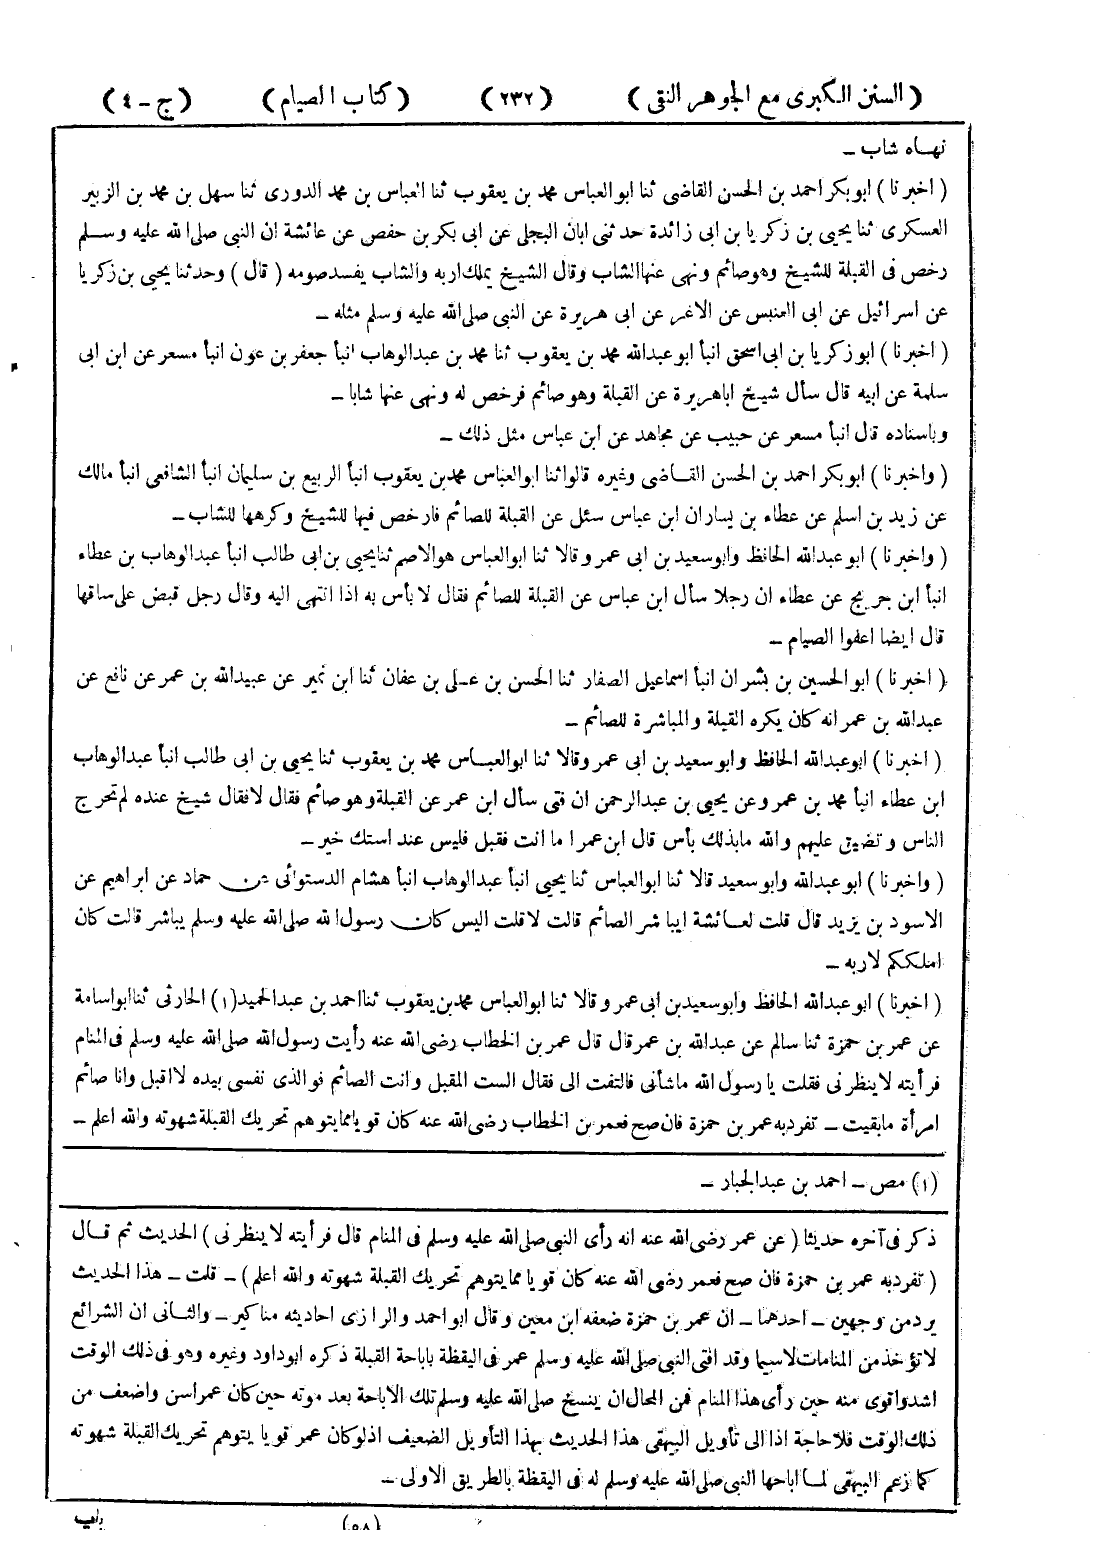 ( السنن الكبرى مع الجوهر النقى ) ( ٢٣٢ ) ( كتاب الصيام ) ( ج - ٤ )
نهاه شاب -
( اخبرنا ) ابوبكر احمد بن الحسن القاضى ثنا ابوالعباس محمد بن يعقوب ثنا العباس بن محمد الدورى ثنا سهل بن محمد بن الزبير
العسكرى ثنا يحيى بن زكريا بن ابى زائدة حدثنى ابان البجلى عن ابى بكر بن حفص عن عائشة ان النبى صلى الله عليه وسلم
رخص فى القبلة للشيخ وهو صائم ونهى عنها الشاب وقال الشيخ يملك اربه والشاب يفسد صومه ( قال ) وحدثنا يحيى بن زكريا
عن اسرائيل عن ابى العنبس عن الاغر عن ابى هريرة عن النبى صلى الله عليه وسلم مثله -
( اخبرنا ) ابو زكريا بن ابى اسحق انبأ ابو عبدالله محمد بن يعقوب ثنا محمد بن عبدالوهاب انبأ جعفر بن عون انبأ مسعر عن ابن ابى
سلمة عن ابيه قال سأل شيخ اباهريرة عن القبلة وهو صائم فرخص له ونهى عنها شابا -
وباسناده قال انبأ مسعر عن حبيب عن مجاهد عن ابن عباس مثل ذلك -
( واخبرنا ) ابوبكر احمد بن الحسن القاضى وغيره قالوا ثنا ابوالعباس محمد بن يعقوب انبأ الربيع بن سليمان انبأ الشافعى انبأ مالك
عن زيد بن اسلم عن عطاء بن يسار ان ابن عباس سئل عن القبلة للصائم فارخص فيها للشيخ وكرهها للشاب -
( واخبرنا ) ابو عبدالله الحافظ وابو سعيد بن ابى عمرو قالا ثنا ابوالعباس هو الاصم ثنا يحيى بن ابى طالب انبأ عبدالوهاب بن عطاء
انبأ ابن جريج عن عطاء ان رجلا سأل ابن عباس عن القبلة للصائم فقال لا بأس به اذا انتهى اليه وقال رجل قبض على ساقها
قال ايضا اعفوا الصيام -
( اخبرنا ) ابو الحسين بن بشران انبأ اسماعيل الصفار ثنا الحسن بن على بن عفان ثنا ابن نمير عن عبيدالله بن عمر عن نافع عن
عبدالله بن عمر انه كان يكره القبلة والمباشرة للصائم -
( اخبرنا ) ابوعبدالله الحافظ وابو سعيد بن ابى عمرو قالا ثنا ابوالعباس محمد بن يعقوب ثنا يحيى بن ابى طالب انبأ عبدالوهاب
ابن عطاء انبأ محمد بن عمرو عن يحيى بن عبدالرحمن ان فتى سأل ابن عمر عن القبلة وهو صائم فقال لا فقال شيخ عنده لم تحرج
الناس وتضيق عليهم والله ما بذلك بأس قال ابن عمر اما انت فقبل فليس عند استك خير -
( واخبرنا ) ابو عبدالله وابو سعيد قالا ثنا ابوالعباس ثنا يحيى انبأ عبدالوهاب انبأ هشام الدستوائى عن حماد عن ابراهيم عن
الاسود بن يزيد قال قلت لعائشة ايباشر الصائم قالت لا قلت اليس كان رسول الله صلى الله عليه وسلم يباشر قالت كان
املككم لاربه -
( اخبرنا ) ابو عبدالله الحافظ وابو سعيد بن ابى عمرو قالا ثنا ابوالعباس محمد بن يعقوب ثنا احمد بن عبدالحميد(١) الحارثى ثنا ابو اسامة
عن عمر بن حمزة ثنا سالم عن عبدالله بن عمر قال قال عمر بن الخطاب رضى الله عنه رأيت رسول الله صلى الله عليه وسلم فى المنام
فرأيته لا ينظرنى فقلت يا رسول الله ما شأنى فالتفت الى فقال الست المقبل وانت الصائم فوالذى نفسى بيده لا اقبل وانا صائم
امرأة ما بقيت - تفرد به عمر بن حمزة فان صح فعمر بن الخطاب رضى الله عنه كان قويا مما يتوهم تحريك القبلة شهوته والله اعلم -
(١) مص - احمد بن عبدالجبار -
ذكر فى آخره حديثا ( عن عمر رضى الله عنه انه رأى النبى صلى الله عليه وسلم فى المنام قال فرأيته لا ينظرنى ) الحديث ثم قال
( تفرد به عمر بن حمزة فان صح فعمر رضى الله عنه كان قويا مما يتوهم تحريك القبلة شهوته والله اعلم ) - قلت - هذا الحديث
يرد من وجهين - احدهما - ان عمر بن حمزة ضعفه ابن معين وقال ابو احمد والرازى احاديثه مناكير - والثانى ان الشرائع
لا تؤخذ من المنامات لاسيما وقد افتى النبى صلى الله عليه وسلم عمر فى اليقظة باباحة القبلة ذكره ابوداود وغيره وهو فى ذلك الوقت
اشد واقوى منه حين رأى هذا المنام فمن المحال ان ينسخ صلى الله عليه وسلم تلك الاباحة بعد موته حين كان عمر اسن واضعف من
ذلك الوقت فلا حاجة اذا الى تأويل البيهقى هذا الحديث بهذا التأويل الضعيف اذ لو كان عمر قويا يتوهم تحريك القبلة شهوته
كما زعم البيهقى لما اباحها النبى صلى الله عليه وسلم له فى اليقظة بالطريق الاولى -
باب